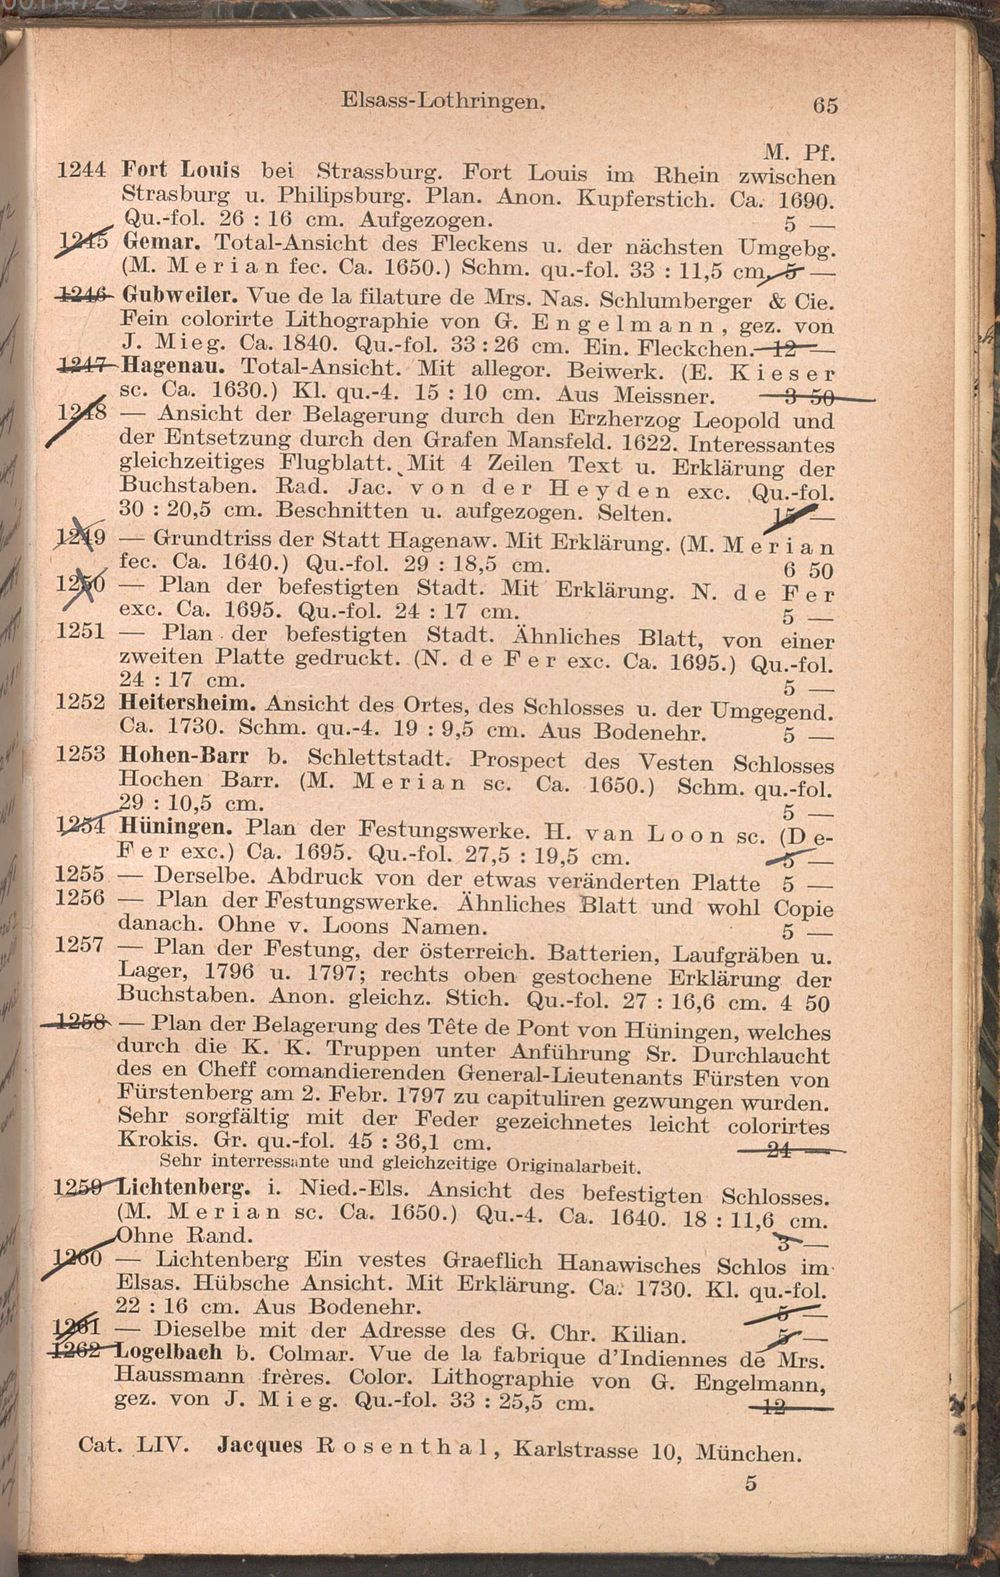 00114729
Elsass-Lothringen. 65
M. Pf.
1244 Fort Louis bei Strassburg. Fort Louis im Rhein zwischen
Strasburg u. Philipsburg. Plan. Anon. Kupferstich. Ca. 1690.
Qu.-fol. 26 : 16 cm. Aufgezogen. 5 —
1245 Gemar. Total-Ansicht des Fleckens u. der nächsten Umgebg.
(M. Merian fec. Ca. 1650.) Schm. qu.-fol. 33 : 11,5 cm. 5 —
1246 Gubweiler. Vue de la filature de Mrs. Nas. Schlumberger & Cie.
Fein colorirte Lithographie von G. Engelmann, gez. von
J. Mieg. Ca. 1840. Qu.-fol. 33 : 26 cm. Ein. Fleckchen. 12 —
1247 Hagenau. Total-Ansicht. Mit allegor. Beiwerk. (E. Kieser
sc. Ca. 1630.) Kl. qu.-4. 15 : 10 cm. Aus Meissner. 3 50
1248 — Ansicht der Belagerung durch den Erzherzog Leopold und
der Entsetzung durch den Grafen Mansfeld. 1622. Interessantes
gleichzeitiges Flugblatt. Mit 4 Zeilen Text u. Erklärung der
Buchstaben. Rad. Jac. von der Heyden exc. Qu.-fol.
30 : 20,5 cm. Beschnitten u. aufgezogen. Selten. 15 —
1249 — Grundtriss der Statt Hagenaw. Mit Erklärung. (M. Merian
fec. Ca. 1640.) Qu.-fol. 29 : 18,5 cm. 6 50
1250 — Plan der befestigten Stadt. Mit Erklärung. N. de Fer
exc. Ca. 1695. Qu.-fol. 24 : 17 cm. 5 —
1251 — Plan der befestigten Stadt. Ähnliches Blatt, von einer
zweiten Platte gedruckt. (N. de Fer exc. Ca. 1695.) Qu.-fol.
24 : 17 cm. 5 —
1252 Heitersheim. Ansicht des Ortes, des Schlosses u. der Umgegend.
Ca. 1730. Schm. qu.-4. 19 : 9,5 cm. Aus Bodenehr. 5 —
1253 Hohen-Barr b. Schlettstadt. Prospect des Vesten Schlosses
Hochen Barr. (M. Merian sc. Ca. 1650.) Schm. qu.-fol.
29 : 10,5 cm. 5 —
1254 Hüningen. Plan der Festungswerke. H. van Loon sc. (De-
Fer exc.) Ca. 1695. Qu.-fol. 27,5 : 19,5 cm. 5 —
1255 — Derselbe. Abdruck von der etwas veränderten Platte 5 —
1256 — Plan der Festungswerke. Ähnliches Blatt und wohl Copie
danach. Ohne v. Loons Namen. 5 —
1257 — Plan der Festung, der österreich. Batterien, Laufgräben u.
Lager, 1796 u. 1797; rechts oben gestochene Erklärung der
Buchstaben. Anon. gleichz. Stich. Qu.-fol. 27 : 16,6 cm. 4 50
1258 — Plan der Belagerung des Tête de Pont von Hüningen, welches
durch die K. K. Truppen unter Anführung Sr. Durchlaucht
des en Cheff comandierenden General-Lieutenants Fürsten von
Fürstenberg am 2. Febr. 1797 zu capituliren gezwungen wurden.
Sehr sorgfältig mit der Feder gezeichnetes leicht colorirtes
Krokis. Gr. qu.-fol. 45 : 36,1 cm. 24 —
Sehr interressante und gleichzeitige Originalarbeit.
1259 Lichtenberg. i. Nied.-Els. Ansicht des befestigten Schlosses.
(M. Merian sc. Ca. 1650.) Qu.-4. Ca. 1640. 18 : 11,6 cm.
Ohne Rand. 3 —
1260 — Lichtenberg Ein vestes Graeflich Hanawisches Schlos im
Elsas. Hübsche Ansicht. Mit Erklärung. Ca. 1730. Kl. qu.-fol.
22 : 16 cm. Aus Bodenehr. 5 —
1261 — Dieselbe mit der Adresse des G. Chr. Kilian. 5 —
1262 Logelbach b. Colmar. Vue de la fabrique d'Indiennes de Mrs.
Haussmann frères. Color. Lithographie von G. Engelmann,
gez. von J. Mieg. Qu.-fol. 33 : 25,5 cm. 12
Cat. LIV. Jacques Rosenthal, Karlstrasse 10, München.
5